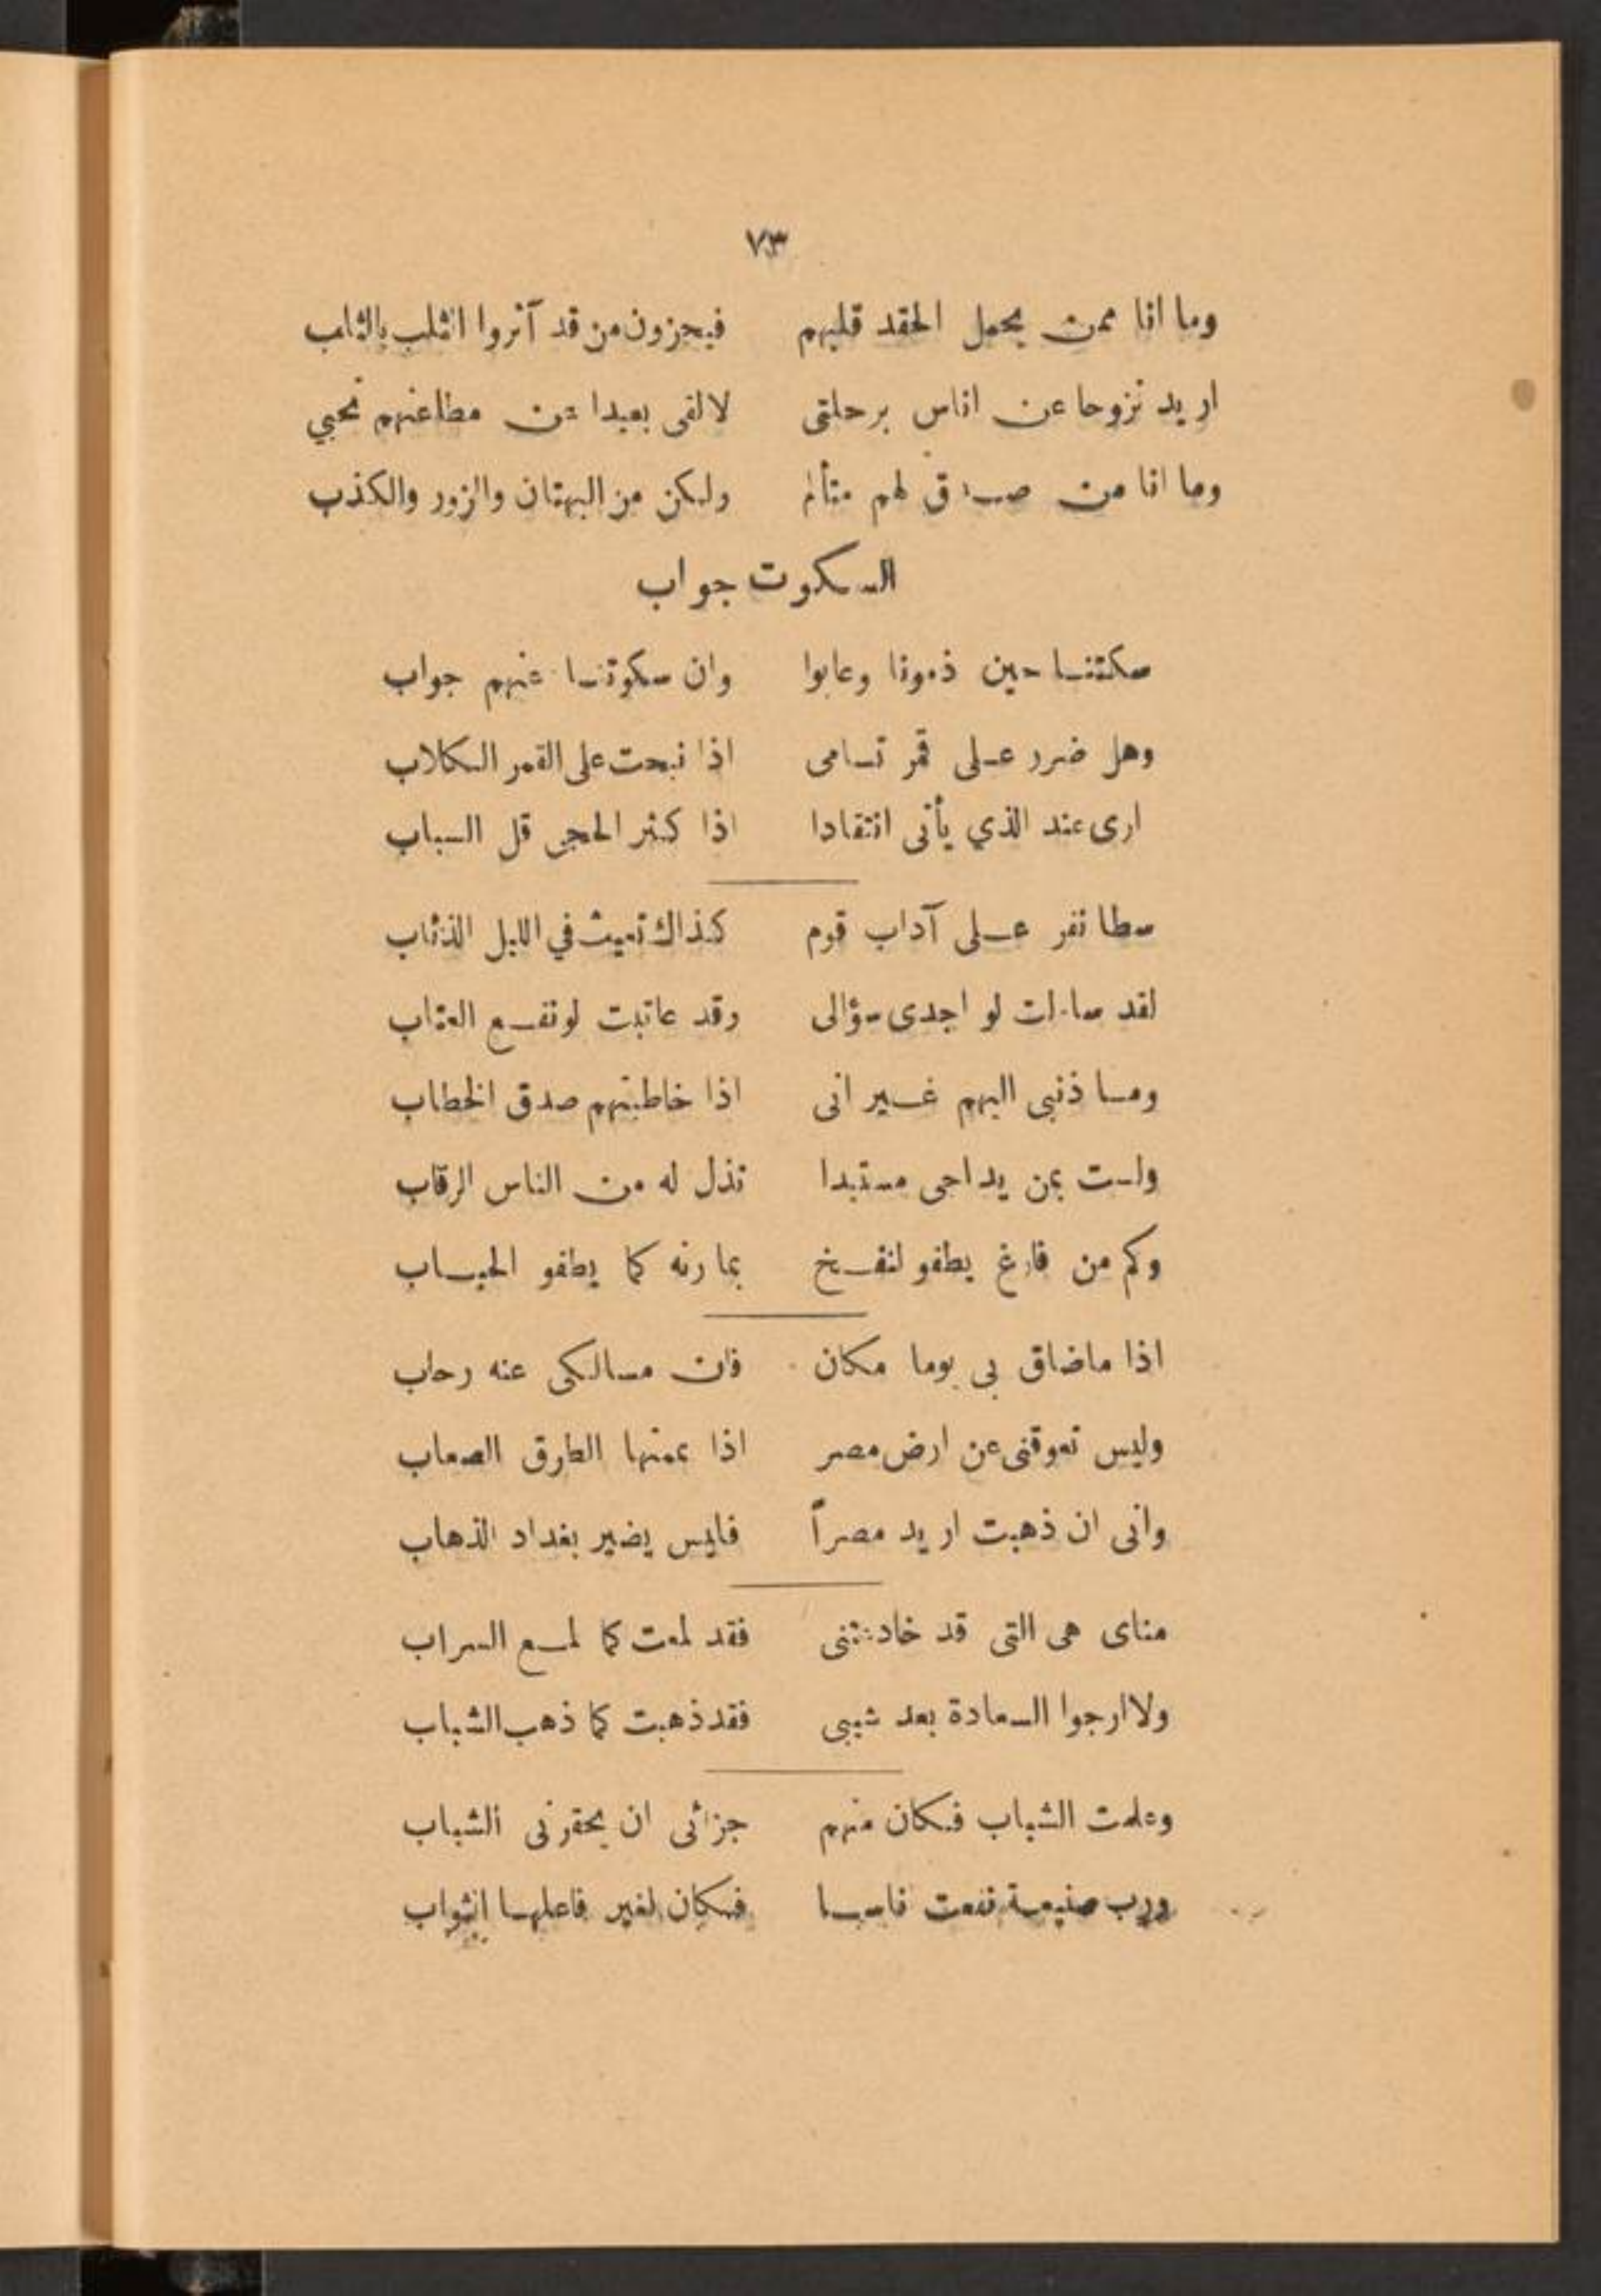 ٧٣
وما انا ممن يحمل الحقد قلبهم فيجزون من قد آثروا الثلب بالثلب
اريد نزوحا عن اناس برحلتى لالقى بعيدا عن مطاعنهم نحبي
وما انا من صدق لهم متألم ولكن من البهتان والزور والكذب
السكوت جواب
سكتنا حين ذمونا وعابوا وان سكوتنا عنهم جواب
وهل ضرر على قمر تسامى اذا نبحت على القمر الكلاب
ارى عند الذي يأتى انتقادا اذا كثر الحجى قل السباب
سطا نفر على آداب قوم كذاك تعيث في الليل الذئاب
لقد ساءلت لو اجدى سؤالى وقد عاتبت لو نفع العتاب
وما ذنبى اليهم غير انى اذا خاطبتهم صدق الخطاب
ولست بمن يداجى مستبدا تذل له من الناس الرقاب
وكم من فارغ يطفو لنفخ بمارنه كما يطفو الحباب
اذا ماضاق بى يوما مكان فان مسالكى عنه رحاب
وليس تعوقنى عن ارض مصر اذا يممتها الطرق الصعاب
وانى ان ذهبت اريد مصراً فليس يضير بغداد الذهاب
مناى هى التى قد خادعتنى فقد لمعت كما لمع السراب
ولا ارجوا السعادة بعد شيبى فقد ذهبت كما ذهب الشباب
وعلمت الشباب فكان منهم جزائى ان يحقرنى الشباب
ورب صنيعة نفعت فاسا فكان لغير فاعلها الثواب